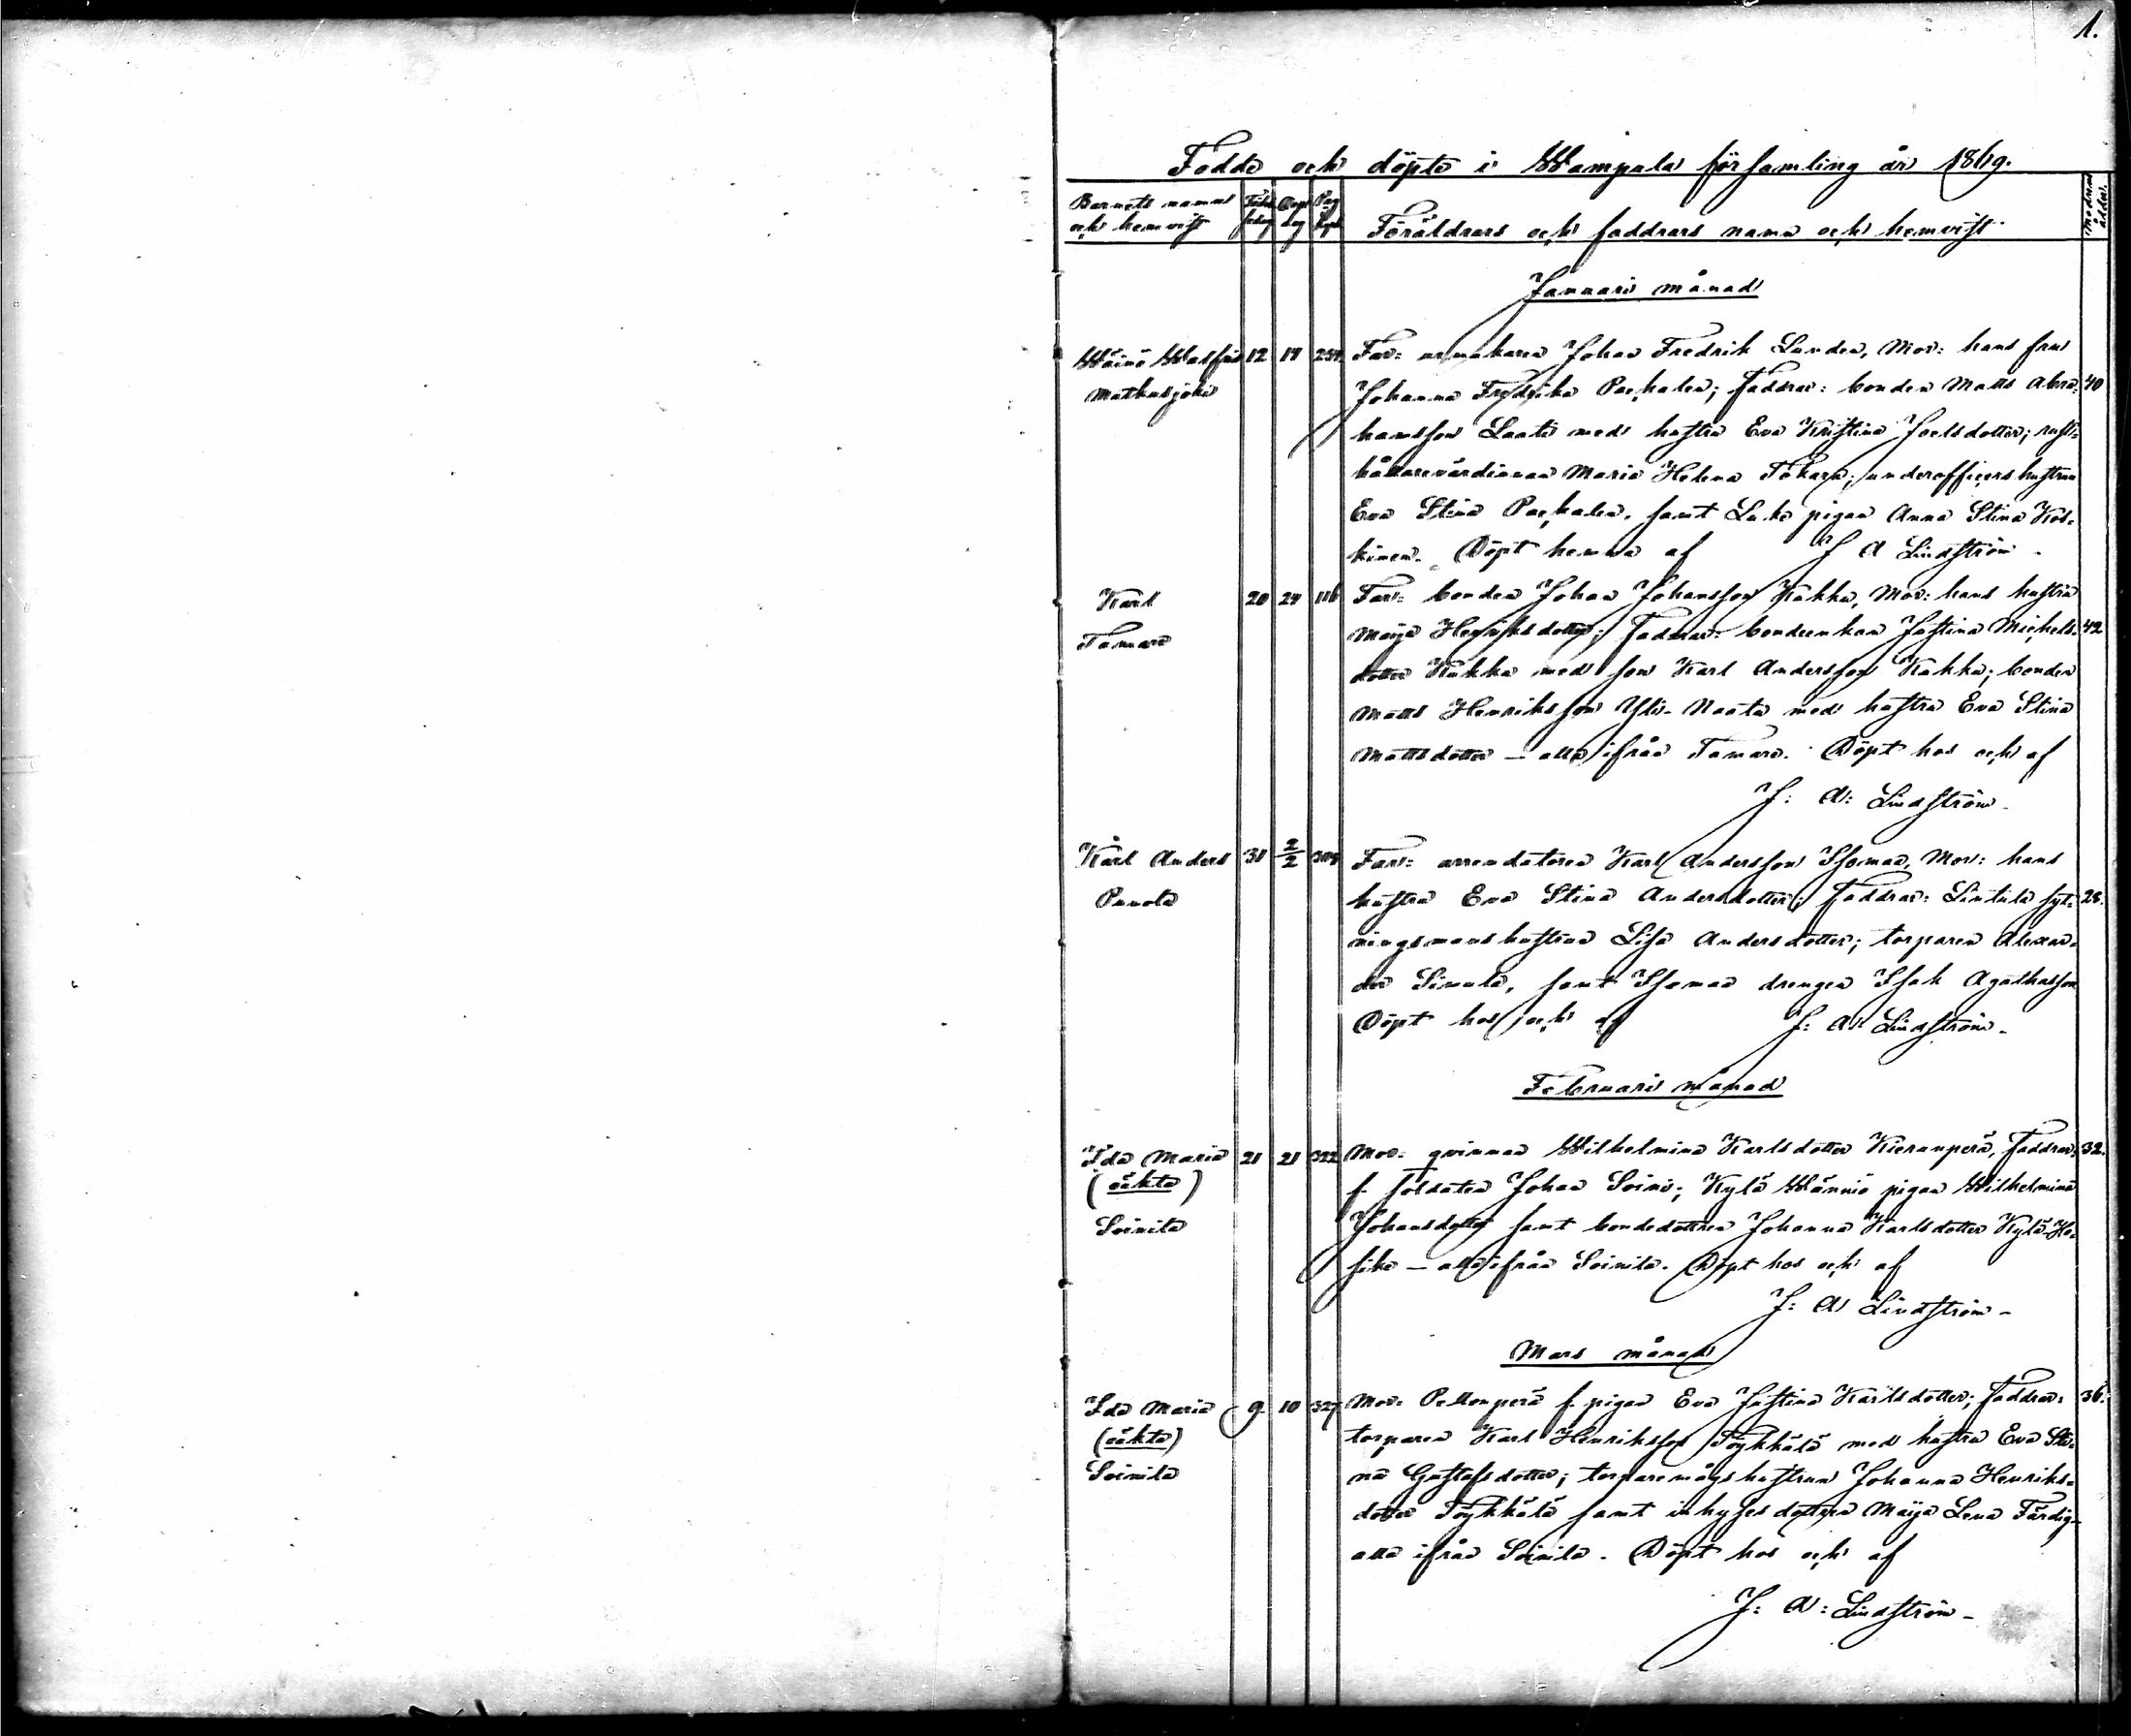 1.
Födde och döpte i Wampula församling år 1869.
Barnets namn och hemvist
Födelsedag
Dopdag
Pag
Föräldrars och faddrars namn och hemvist
Modrens ålder
Januari månad
Wäinö 12 14 254 Far: urmakaren Johan Fredrik Lunden, Mor: hans fru
Matkusjoki Johanna Fredrika Pachalen; faddrar: bonden Matts Abra- 40
hamsson Laati med hustru Eva Kristina Joelsdotter; rust-
hållarevärdinnan Maria Helena; underofficers hustrun
Eva Stina Pachalen, samt pigan Anna Stina Kos-
kinen. Döpt hemma af J A Lindström
Karl 20 24 116 Far: bonden Johan Johansson Kukku, Mor: hans hustru
Tamare Maija Henriksdotter; faddrar: bondeenkan Justina Michels- 42
dotter Kukku med son Karl Andersson Kukku; bonden
Matts Henriksson Yli-Naatu med hustru Eva Stina
Mattsdotter — alla ifrån Tamare. Döpt hos och af
J: A: Lindström
Karl Anders 31 2/2 Far: arrendatoren Karl Andersson Isomaa, Mor: hans
Punola hustru Eva Stina Andersdotter; faddrar: Lintula syt- 28.
ningsmanshustrun Lisa Andersdotter; torparen Alexan-
der Simula, samt Isomaa drengen Isak Agathasson
Döpt hos och af J: A: Lindström
Februari månad
Ida Maria 21 21 322 Mor: qvinnan Wilhelmina Karlsdotter Kieranperä, faddrar: 32.
(oäkta) f. soldaten Johan Soini; Kylä Männiö pigan Wilhelmina
Soinila Johansdotter samt bondedottren Johanna Karlsdotter Kylä-Ho-
sike — alla ifrån Soinila. Döpt hos och af
J: A Lindström
Mars månad
Ida Maria 9 10 327 Mor: Peltonperä f. pigan Eva Justina Karlsdotter; faddrar: 36.
(oäkta) torparen Karl Henriksson Töykkälä med hustru Eva Sti-
Soinila na Gustafsdotter; torparemågs hustrun Johanna Henriks-
dotter Töykkälä samt inhyses dottren Maija Lena Färdig —
alla ifrån Soinila. Döpt hos och af
J: A: Lindström